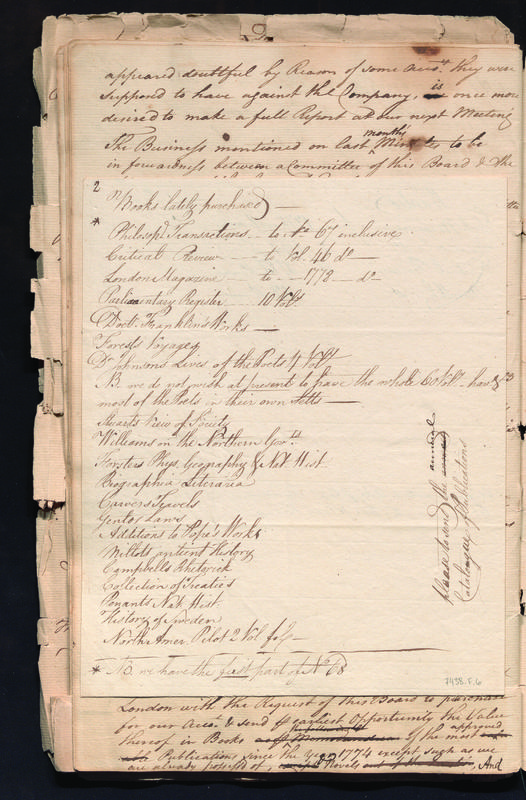 appeared doubtful by Reason of some Acco.ts they were
supposed to have against the Company, is once more
desired to make a full Report at our next Meeting
The Business mentioned on last months Minutes to be
in forwardness between a Committee of this Board & the
2
Books lately purchased —
* Philosop.l Transactions — to No. 67 inclusive
Critical Review — to Vol. 46 do
London Magazine — to — 1778 — do
Parliamentary Register — 10 Vol.s
Doct.r Franklin's Works —
Forest's Voyages
Dr Johnsons Lives of the Poets 4 Vol.s
NB. we do not wish at present to have the whole 60 Vol.s having
most of the Poets in their own setts —
Stuarts View of Society
Williams on the Northern Gov.ts
Forsters Phys. Geography & Nat. Hist
Biographia Literaria
Carvers Travels
Gentoo Laws
Additions to Pope's Works
Millots antient History
Campbells Rhetorick
Collection of Treaties
Penants Nat. Hist.
History of Sweden
North Amer. Pilot 2 Vol. fol. —
* NB. we have the first part of No. 68
please to send the annual
Catalogue of Publications
7438.F.6
London with the Request of this Board to purchase
for our Acco.t & send p earliest Opportunity the Value
thereof in Books of the most approved
Publications since the year 1774 except such as we
are already possess'd of, Novels And